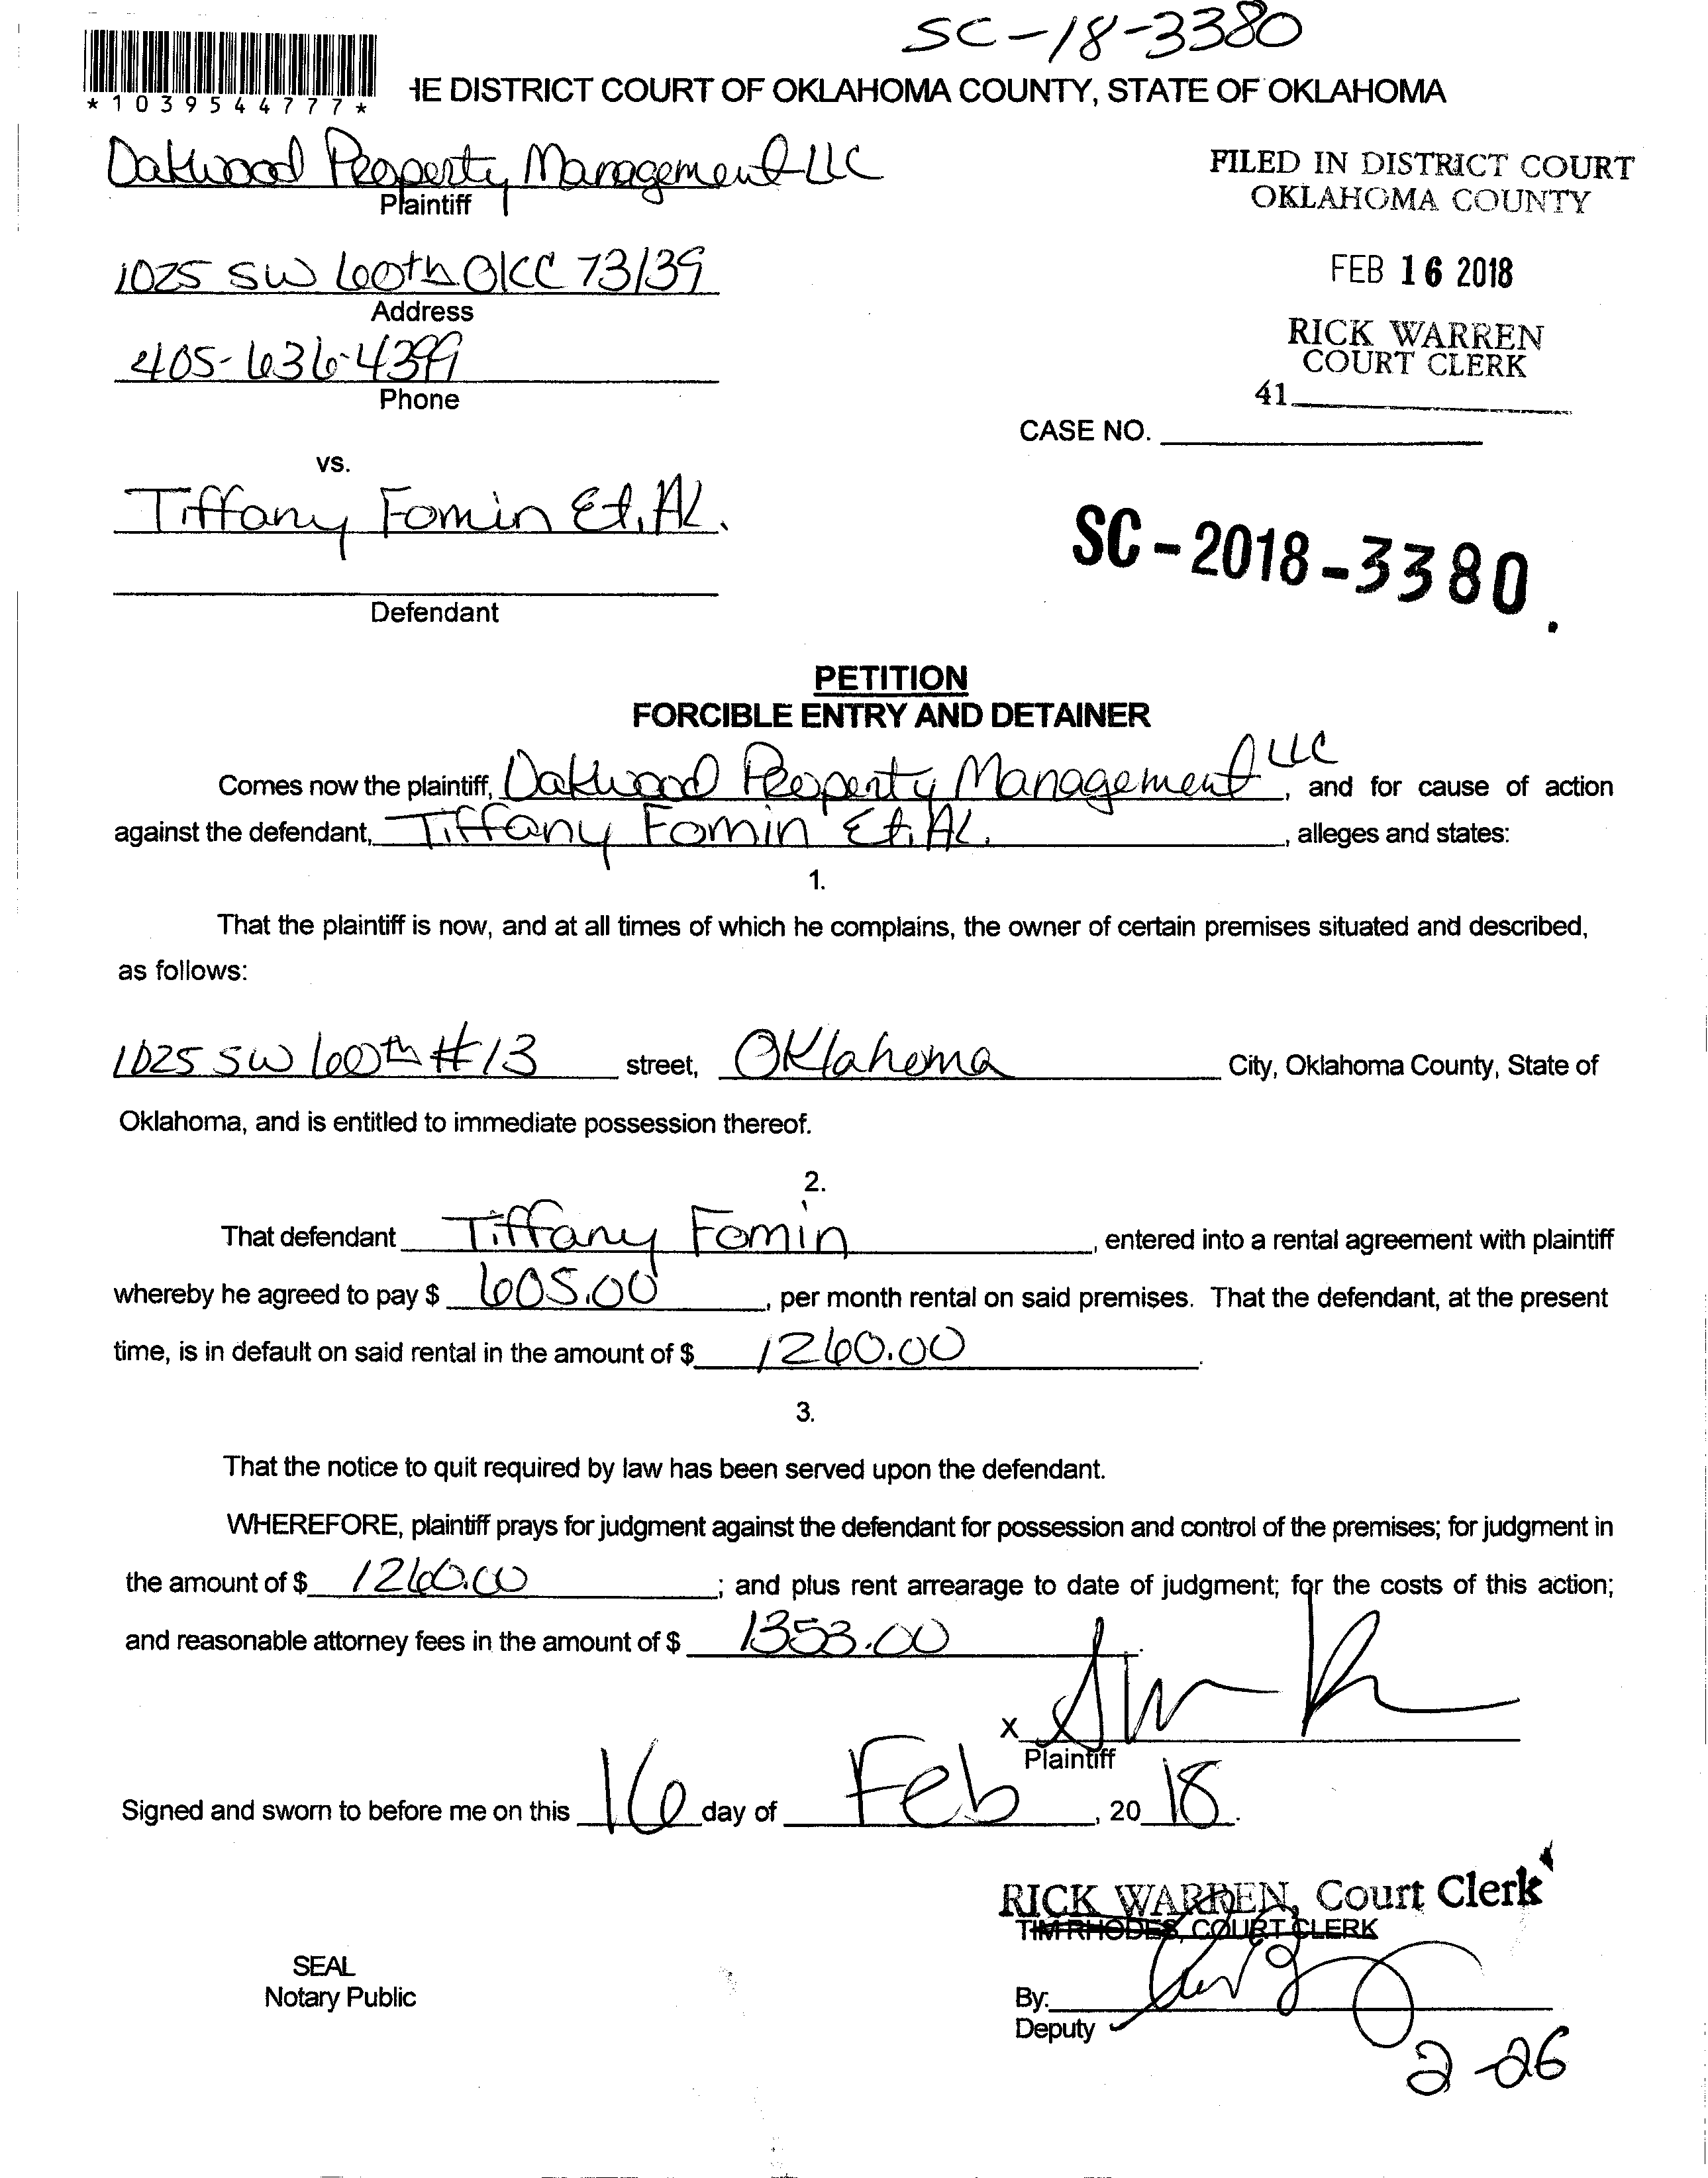 SC-18-3380
*1039544777*
HE DISTRICT COURT OF OKLAHOMA COUNTY, STATE OF OKLAHOMA
Oakwood Property Management LLC
Plaintiff
FILED IN DISTRICT COURT
OKLAHOMA COUNTY
1025 SW 60th OKC 73139
Address
FEB 16 2018
405-636-4399
Phone
RICK WARREN
COURT CLERK
41
CASE NO.
vs.
Tiffany Fomin Et. Al.
SC-2018-3380.
Defendant
PETITION
FORCIBLE ENTRY AND DETAINER
Comes now the plaintiff, Oakwood Property Management LLC, and for cause of action
against the defendant, Tiffany Fomin Et. Al., alleges and states:
1.
That the plaintiff is now, and at all times of which he complains, the owner of certain premises situated and described,
as follows:
1025 SW 60th #13 street, Oklahoma City, Oklahoma County, State of
Oklahoma, and is entitled to immediate possession thereof.
2.
That defendant Tiffany Fomin, entered into a rental agreement with plaintiff
whereby he agreed to pay $ 605.00, per month rental on said premises. That the defendant, at the present
time, is in default on said rental in the amount of $ 1260.00.
3.
That the notice to quit required by law has been served upon the defendant.
WHEREFORE, plaintiff prays for judgment against the defendant for possession and control of the premises; for judgment in
the amount of $ 1260.00; and plus rent arrearage to date of judgment; for the costs of this action;
and reasonable attorney fees in the amount of $ 1353.00.
X
Plaintiff
Signed and sworn to before me on this 16 day of Feb, 2018.
RICK WARREN, Court Clerk
TIM RHODES, COURT CLERK
SEAL
Notary Public
By:
Deputy
2-26